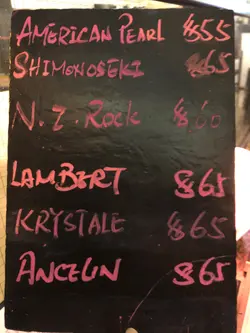 AMERICAN PEARL $55
SHIMONOSEKI $65
N.Z. ROCK $60
LAMBERT $65
KRYSTALE $65
ANCELIN $65